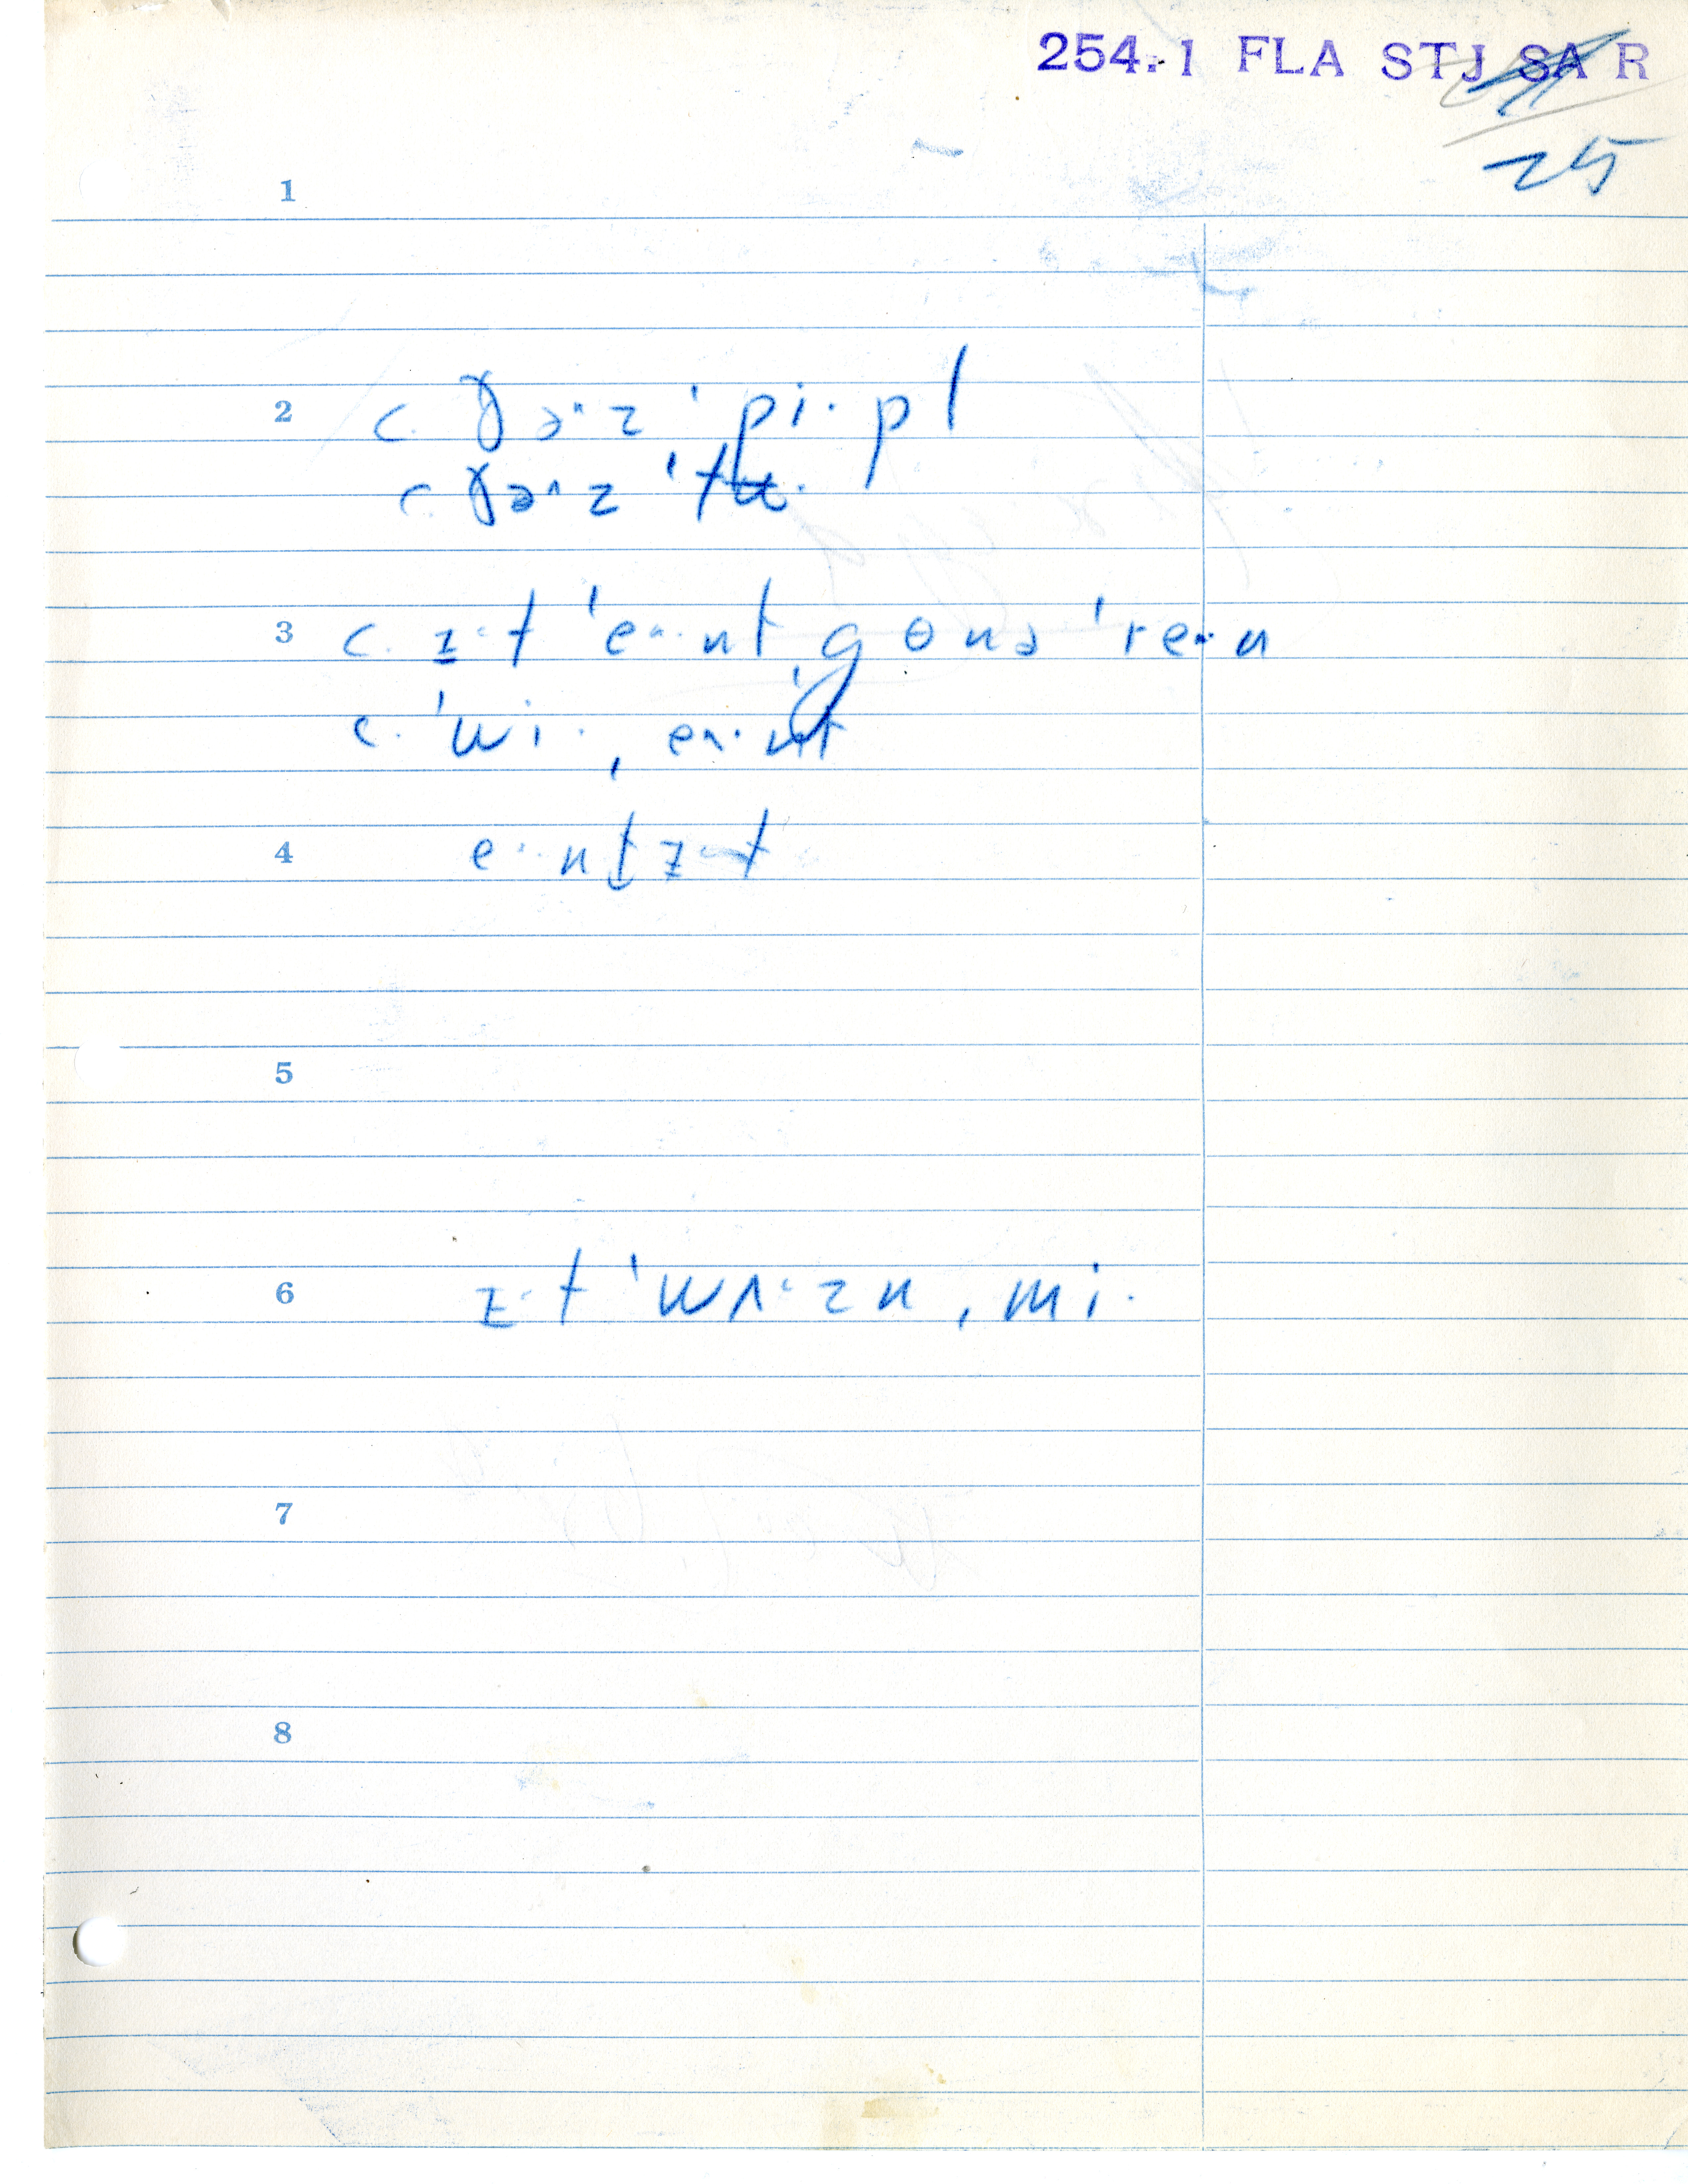 254.1 FLA STJ SA R
25
1
2 c. ðɚ·z ˈpi·pl
c. ðɚ^z ˈtu·
3 c. ɪ·t ˈe··nt gɵnəˈre·n
c. ˈwi· ˌe^·nt
4 e··nt ɪ·t
5
6 ɪ·t ˈwʌ·zn ˌmi·
7
8